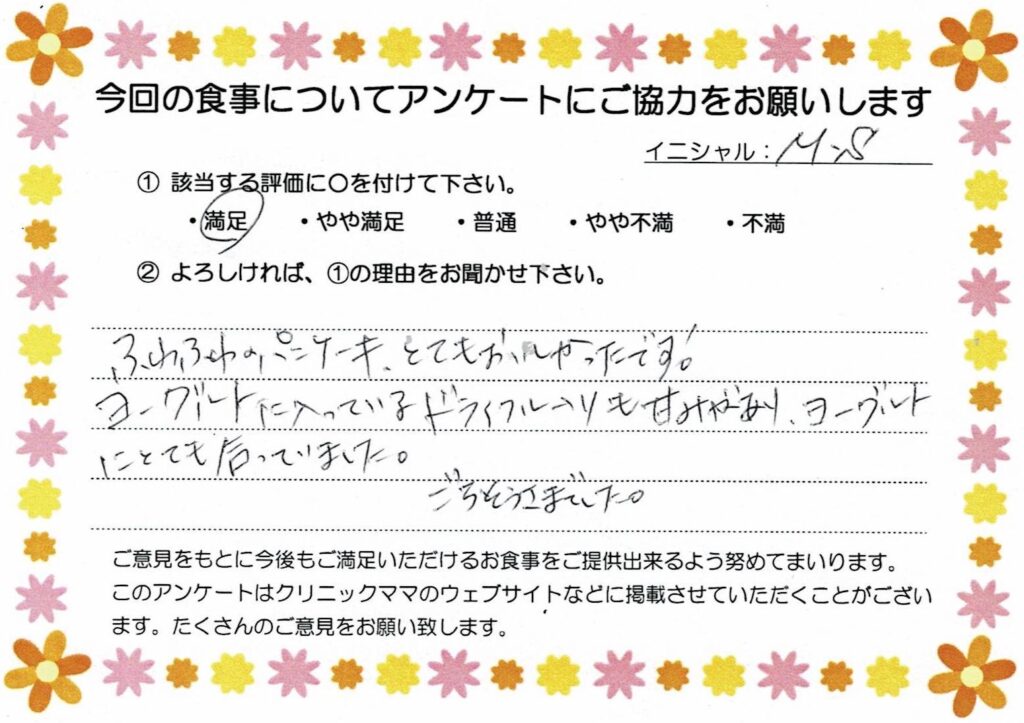 今回の食事についてアンケートにご協力をお願いします
イニシャル：M.S
① 該当する評価に〇を付けて下さい。
・満足 ・やや満足 ・普通 ・やや不満 ・不満
② よろしければ、①の理由をお聞かせ下さい。
ふわふわのパンケーキ、とてもおいしかったです!
ヨーグルトに入っているドライフルーツも甘みがあり、ヨーグルト
にとても合っていました。
ごちそうさまでした。
ご意見をもとに今後もご満足いただけるお食事をご提供出来るよう努めてまいります。
このアンケートはクリニックママのウェブサイトなどに掲載させていただくことがござい
ます。たくさんのご意見をお願い致します。